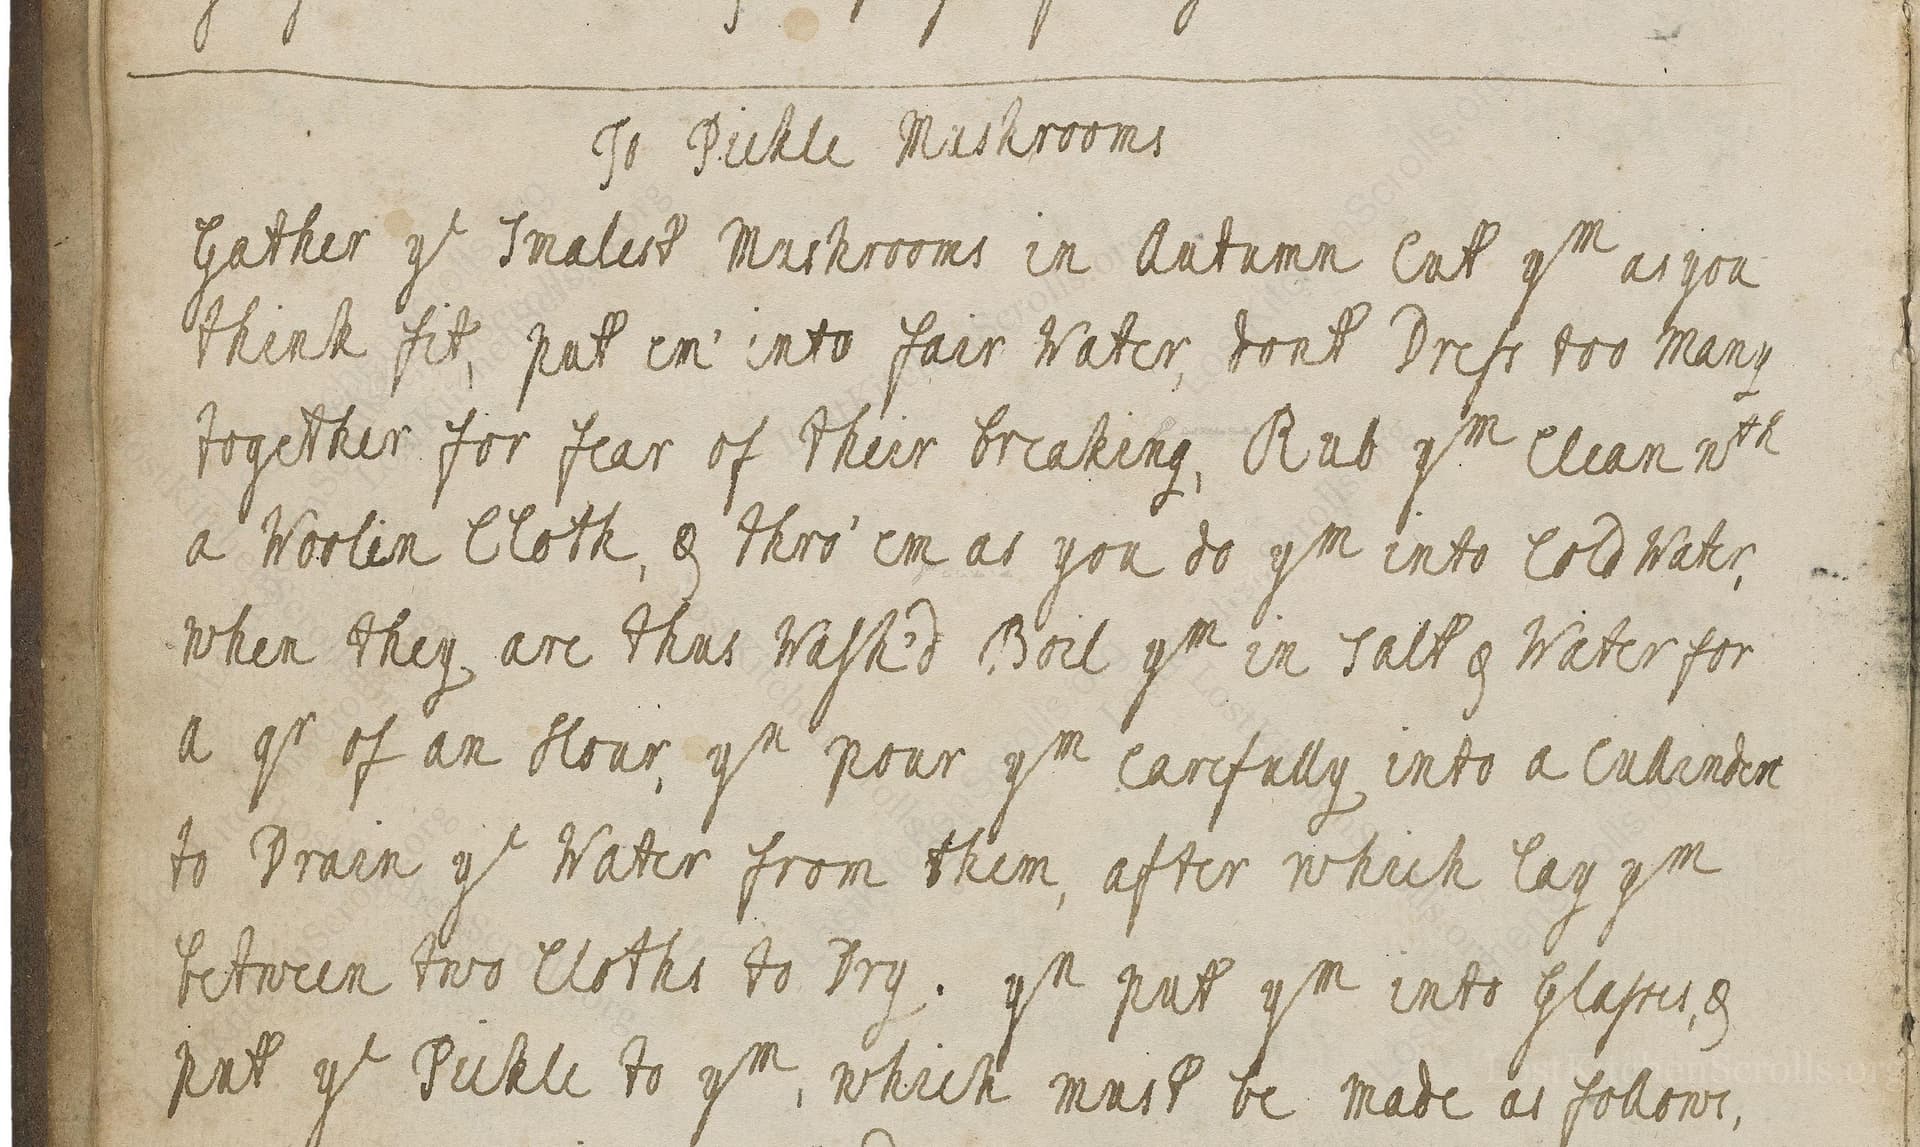 To Pickle Mushrooms
Gather ye Smalest Mushrooms in Autumn Cut ym as you
think fit, put em' into fair Water, dont Dress too Many
together for fear of their breaking, Rub ym Clean wth
a Woolin Cloth, & thro' em as you do ym into Cold Water,
when they are thus Wash'd Boil ym in Salt & Water for
a qr of an Hour, yn pour ym Carefully into a Cullinder
to Drain ye Water from them, after which lay ym
between two Cloths to Dry. yn put ym into Glasses, &
put ye Pickle to ym, which must be made as follows,
LostKitchenScrolls.org